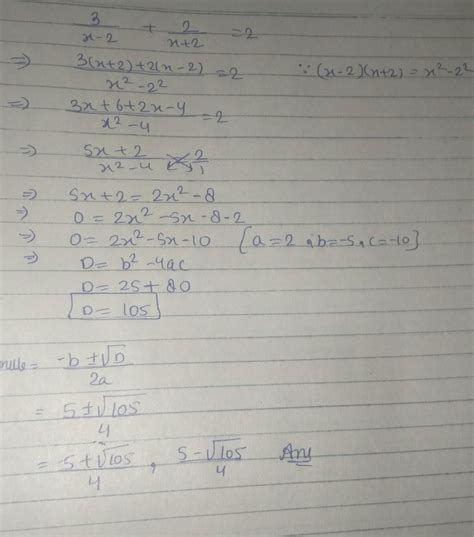 3/(x-2) + 2/(x+2) = 2
⇒ (3(x+2)+2(x-2))/(x²-2²) = 2 ∵ (x-2)(x+2) = x²-2²
⇒ (3x+6+2x-4)/(x²-4) = 2
⇒ (5x+2)/(x²-4) 2/1
⇒ 5x+2 = 2x²-8
⇒ 0 = 2x²-5x-8-2
⇒ 0 = 2x²-5x-10 [a=2, b=-5, c=-10]
⇒ D = b²-4ac
D = 25+80
D = 105
= (-b±√D)/2a
= (5±√105)/4
= (5+√105)/4, (5-√105)/4 Ans